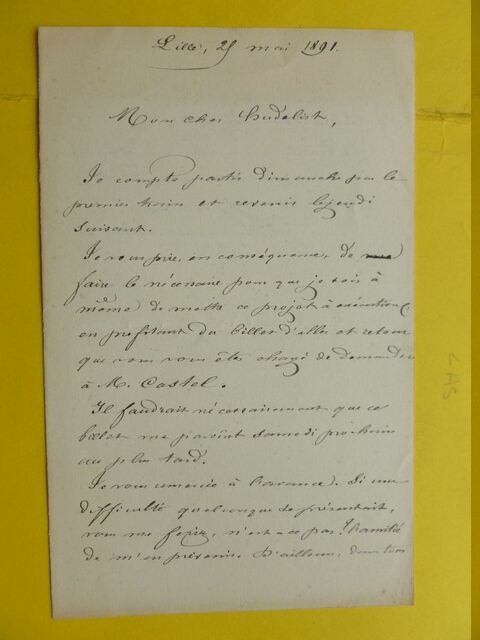 Lille, 25 mai 1891.
Mon cher Hudelist,
Je compte partir dimanche par le
premier train et revenir le jeudi
suivant.
Je vous prie, en conséquence, de
faire le nécessaire pour que je sois à
même de mettre ce projet à exécution,
en profitant du billet d'aller et retour
que vous vous êtes chargé de demander
à M. Castel.
Il faudrait nécessairement que ce
billet me parvînt samedi prochain
au plus tard.
Je vous remercie à l'avance. Si une
difficulté quelconque se présentait,
vous me feriez, n'est-ce pas? l'amitié
de m'en prévenir. D'ailleurs,
LAS